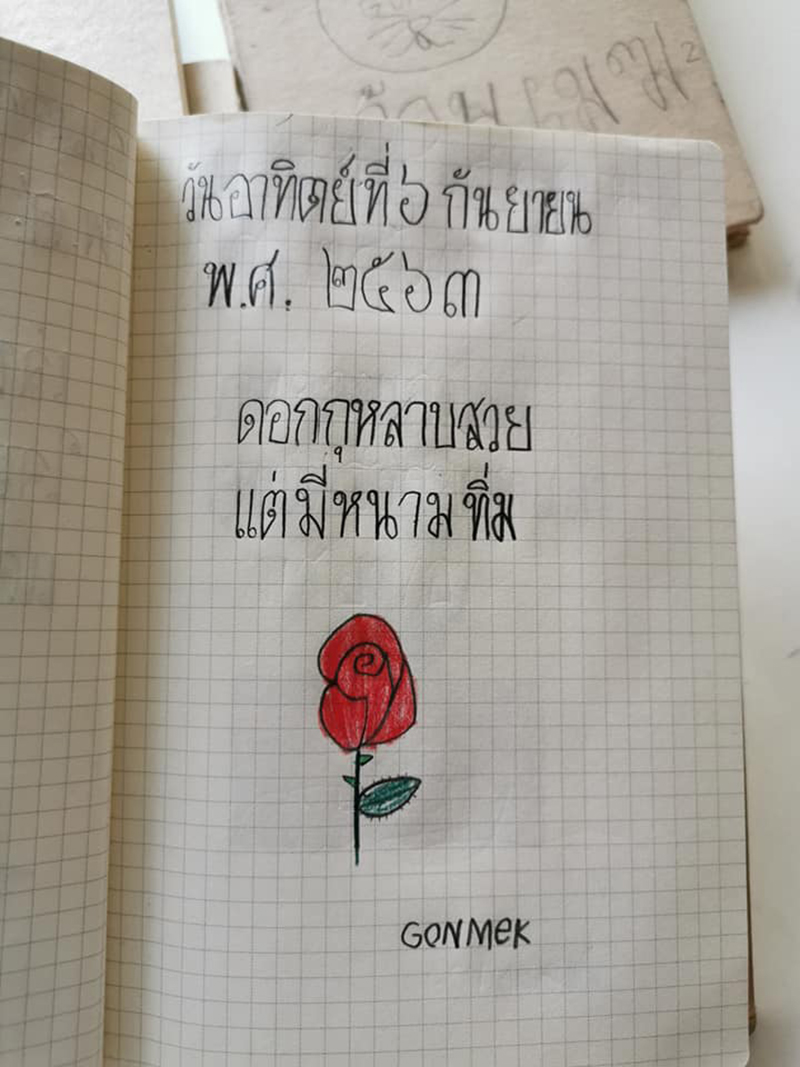 วันอาทิตย์ที่ ๖ กันยายน
พ.ศ. ๒๕๖๓
ดอกกุหลาบสวย
แต่มีหนามทิ่ม
GONMEK